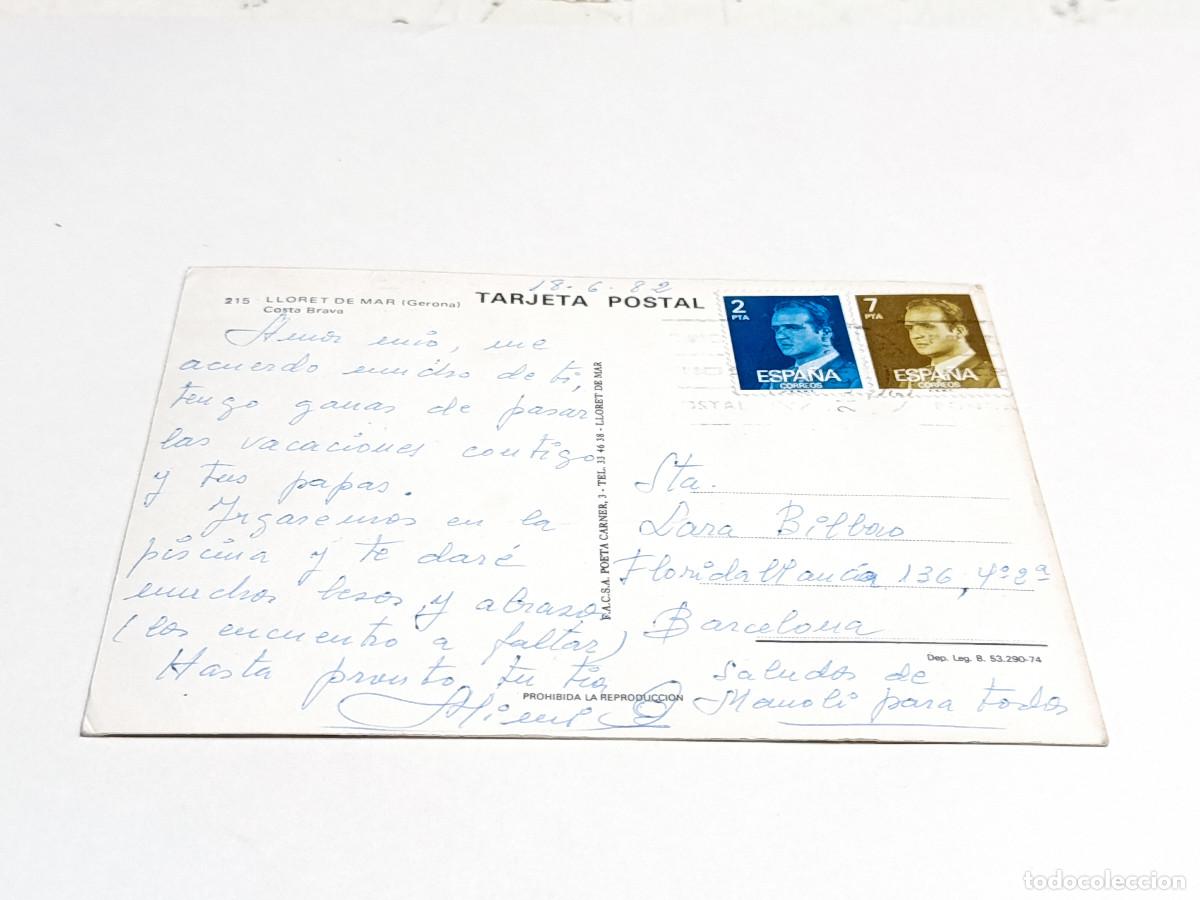 18-6-82
215 LLORET DE MAR (Gerona)
Costa Brava
TARJETA POSTAL
2
PTA
ESPAÑA
CORREOS
7
PTA
ESPAÑA
CORREOS
Amor mio, me
acuerdo mucho de ti,
tengo ganas de pasar
las vacaciones contigo
y tus papas.
Jugaremos en la
piscina y te daré
muchos besos y abrazos
(los encuentro a faltar)
Hasta pronto tu tia
F.A.C.S.A. POETA CARNER, 3 - TEL. 33 46 38 - LLORET DE MAR
Sta.
Lara Bilbao
Floridablanca 136, 4º 2ª
Barcelona
Dep. Leg. B. 53.290-74
PROHIBIDA LA REPRODUCCION
Saludos de
Manoli para todos
todocoleccion